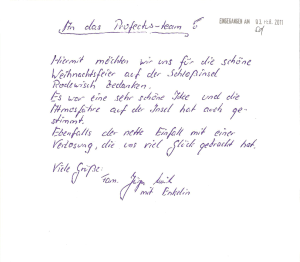 An das Projekts-team!
EINGEGANGEN AM 03. FEB. 2011
Hiermit möchten wir uns für die schöne
Weihnachtsfeier auf der Schloßinsel
Rodewisch bedanken.
Es war eine sehr schöne Idee und die
Atmosfähre auf der Insel hat auch ge-
stimmt.
Ebenfalls der nette Einfall mit einer
Verlosung, die uns viel Glück gebracht hat.
Viele Grüße:
Fam.
mit Enkelin